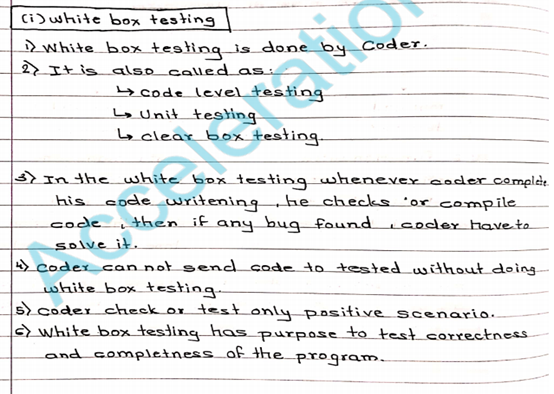 (i) White box testing
1) White box testing is done by Coder.
2) It is also called as:
↳ code level testing
↳ Unit testing
↳ clear box testing.
3) In the white box testing whenever coder complete
his code writening, he checks or compile
code, then if any bug found, coder have to
solve it.
4) Coder can not send code to tested without doing
white box testing.
5) Coder check or test only positive scenario.
6) White box testing has purpose to test correctness
and completness of the program.
Acceleration